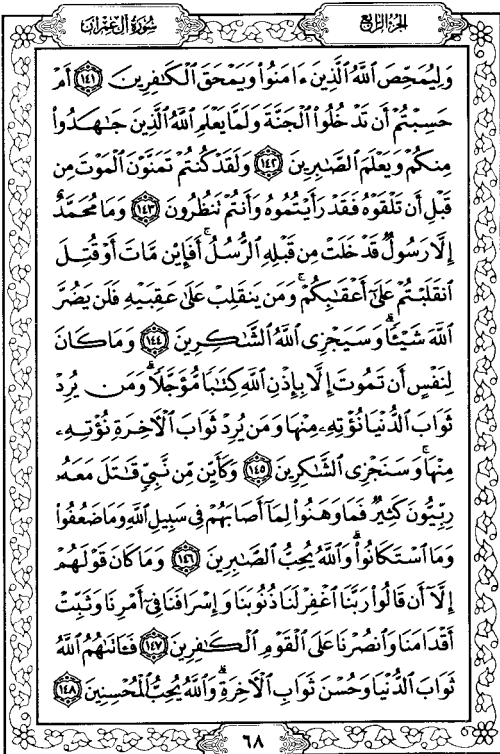 سُورَةُ آلِ عِمْرَانَ
الجُزْءُ الرَّابِعُ
وَلِيُمَحِّصَ ٱللَّهُ ٱلَّذِينَ ءَامَنُوا۟ وَيَمْحَقَ ٱلْكَٰفِرِينَ ١٤١ أَمْ
حَسِبْتُمْ أَن تَدْخُلُوا۟ ٱلْجَنَّةَ وَلَمَّا يَعْلَمِ ٱللَّهُ ٱلَّذِينَ جَٰهَدُوا۟
مِنكُمْ وَيَعْلَمَ ٱلصَّٰبِرِينَ ١٤٢ وَلَقَدْ كُنتُمْ تَمَنَّوْنَ ٱلْمَوْتَ مِن
قَبْلِ أَن تَلْقَوْهُ فَقَدْ رَأَيْتُمُوهُ وَأَنتُمْ تَنظُرُونَ ١٤٣ وَمَا مُحَمَّدٌ
إِلَّا رَسُولٌ قَدْ خَلَتْ مِن قَبْلِهِ ٱلرُّسُلُ ۚ أَفَإِي۟ن مَّاتَ أَوْ قُتِلَ
ٱنقَلَبْتُمْ عَلَىٰٓ أَعْقَٰبِكُمْ ۚ وَمَن يَنقَلِبْ عَلَىٰ عَقِبَيْهِ فَلَن يَضُرَّ
ٱللَّهَ شَيْـًٔا ۗ وَسَيَجْزِى ٱللَّهُ ٱلشَّٰكِرِينَ ١٤٤ وَمَا كَانَ
لِنَفْسٍ أَن تَمُوتَ إِلَّا بِإِذْنِ ٱللَّهِ كِتَٰبًا مُّؤَجَّلًا ۗ وَمَن يُرِدْ
ثَوَابَ ٱلدُّنْيَا نُؤْتِهِۦ مِنْهَا وَمَن يُرِدْ ثَوَابَ ٱلْءَاخِرَةِ نُؤْتِهِۦ
مِنْهَا ۚ وَسَنَجْزِى ٱلشَّٰكِرِينَ ١٤٥ وَكَأَيِّن مِّن نَّبِىٍّ قَٰتَلَ مَعَهُۥ
رِبِّيُّونَ كَثِيرٌ فَمَا وَهَنُوا۟ لِمَآ أَصَابَهُمْ فِى سَبِيلِ ٱللَّهِ وَمَا ضَعُفُوا۟
وَمَا ٱسْتَكَانُوا۟ ۗ وَٱللَّهُ يُحِبُّ ٱلصَّٰبِرِينَ ١٤٦ وَمَا كَانَ قَوْلَهُمْ
إِلَّآ أَن قَالُوا۟ رَبَّنَا ٱغْفِرْ لَنَا ذُنُوبَنَا وَإِسْرَافَنَا فِىٓ أَمْرِنَا وَثَبِّتْ
أَقْدَامَنَا وَٱنصُرْنَا عَلَى ٱلْقَوْمِ ٱلْكَٰفِرِينَ ١٤٧ فَـَٔاتَىٰهُمُ ٱللَّهُ
ثَوَابَ ٱلدُّنْيَا وَحُسْنَ ثَوَابِ ٱلْءَاخِرَةِ ۗ وَٱللَّهُ يُحِبُّ ٱلْمُحْسِنِينَ ١٤٨
٦٨